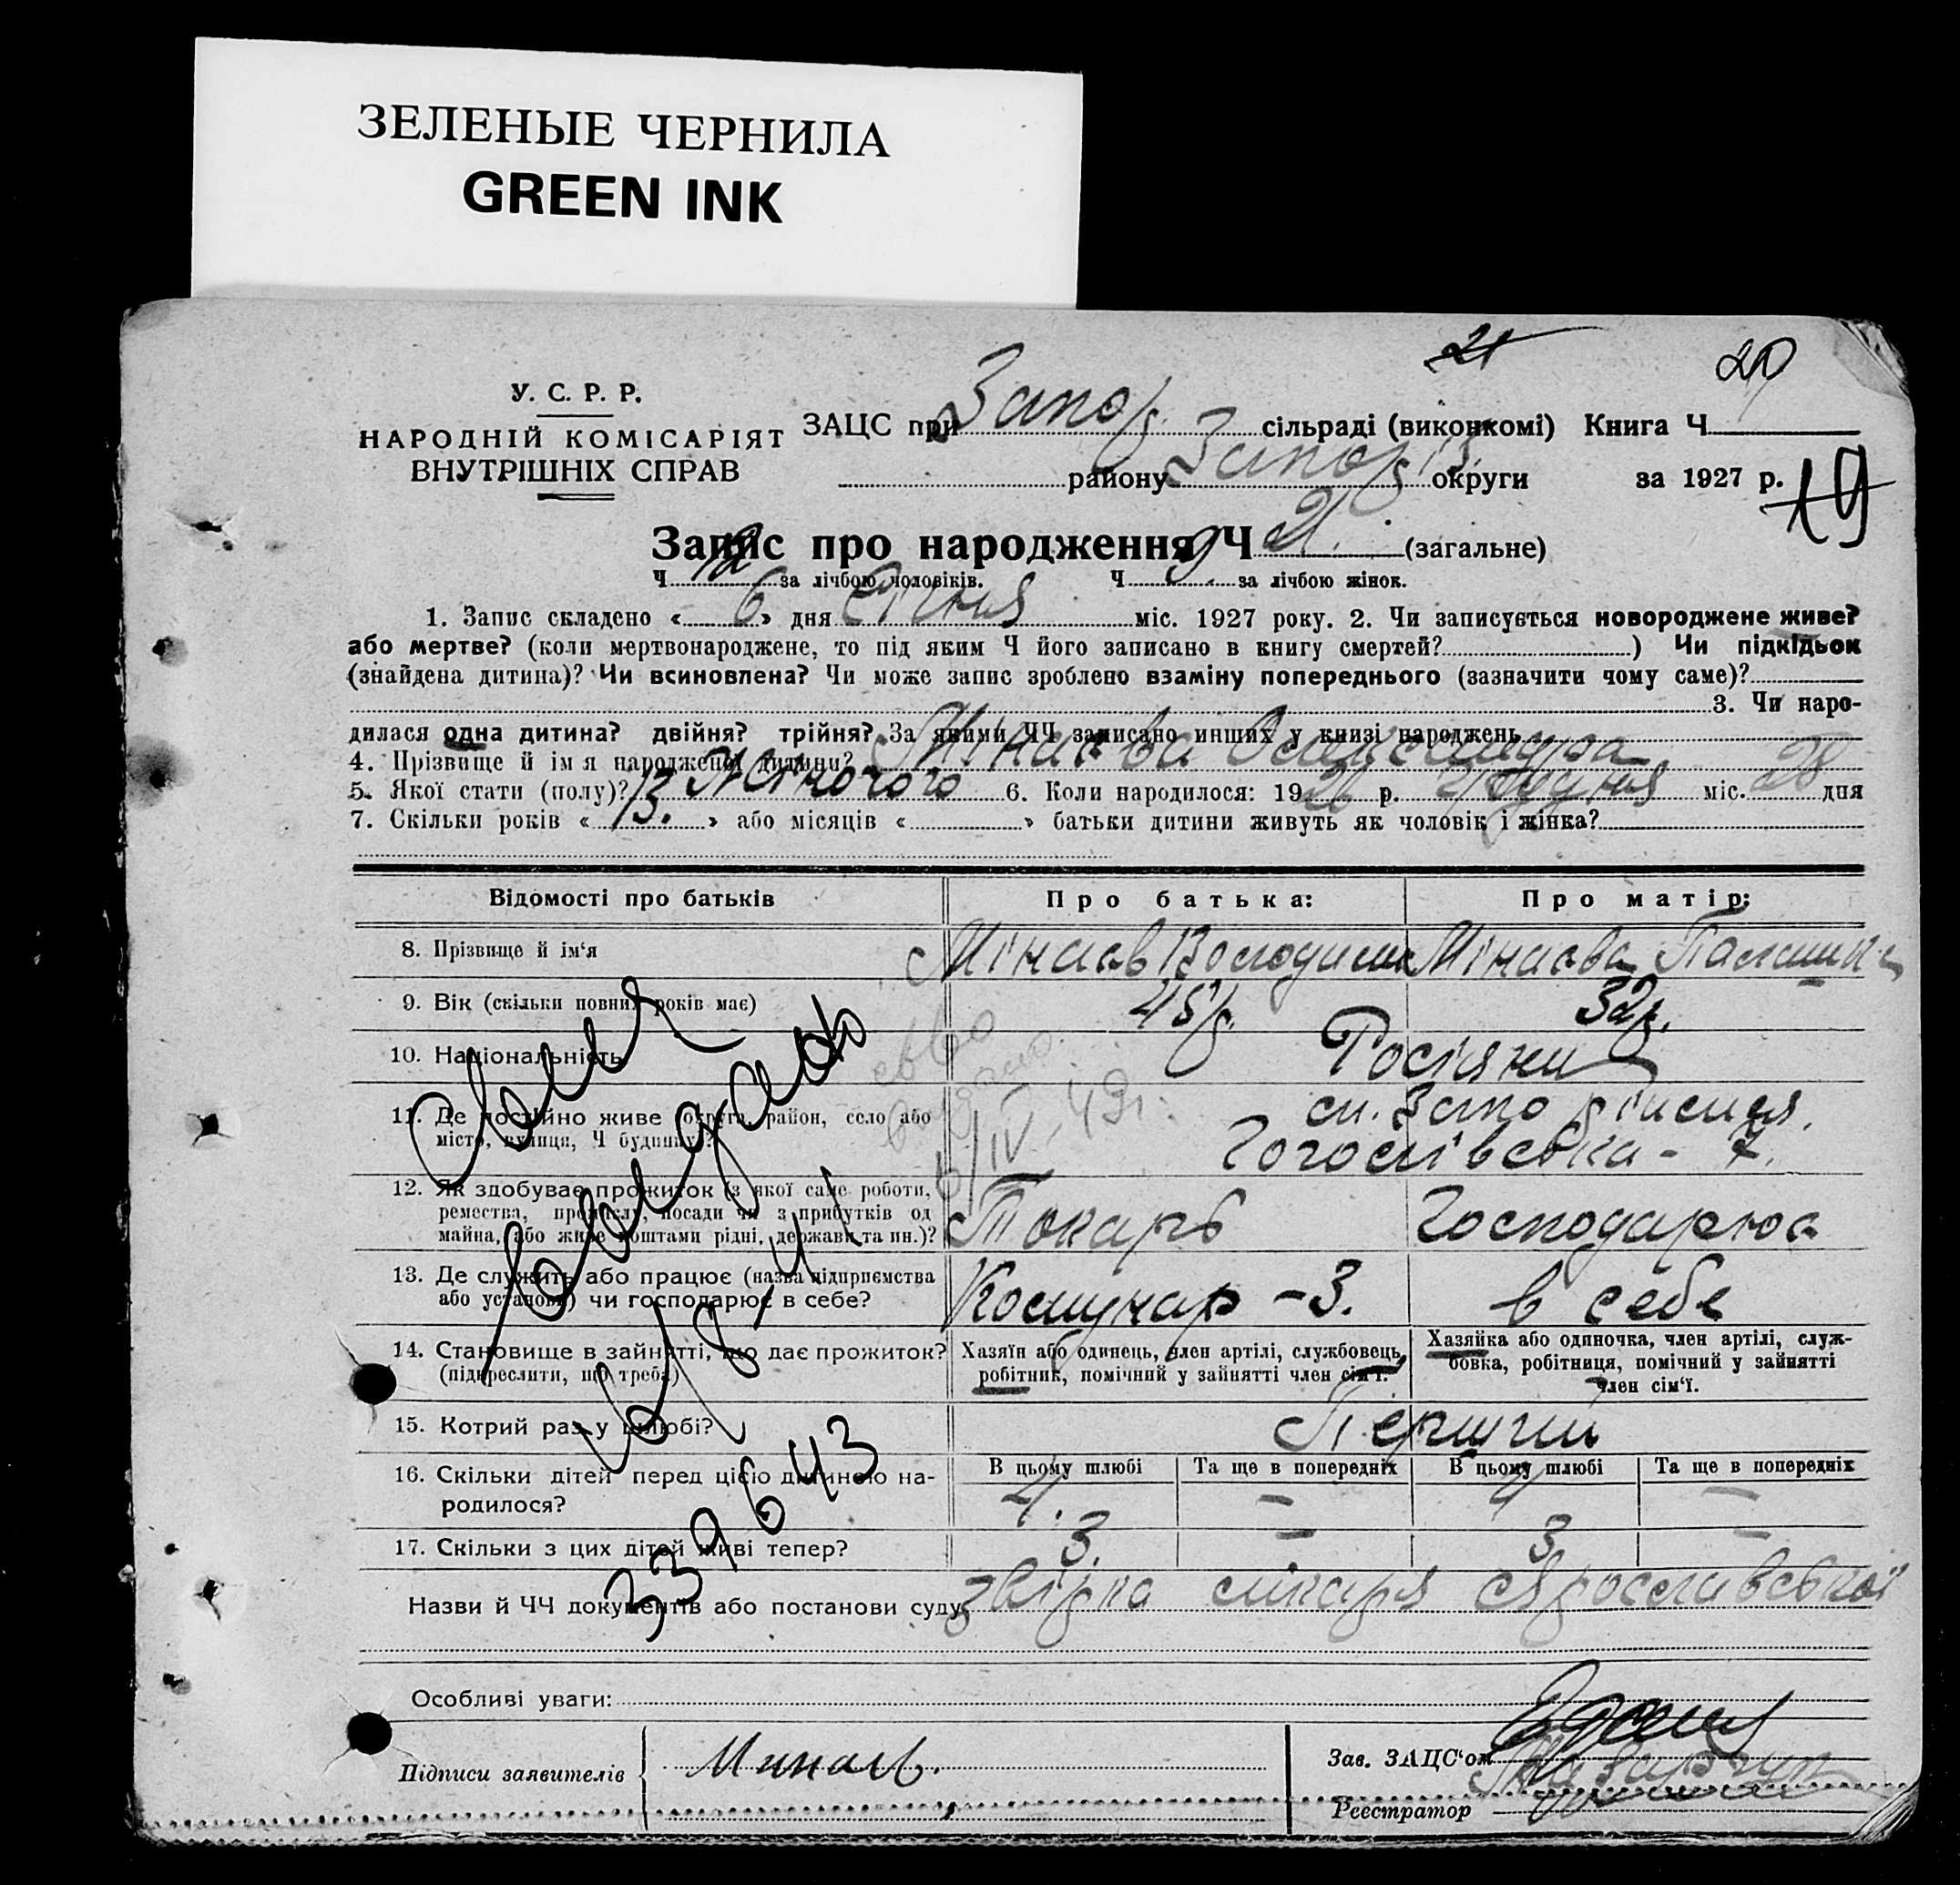 ЗЕЛЕНЫЕ ЧЕРНИЛА
GREEN INK
21
20
У. С. Р. Р.
НАРОДНІЙ КОМІСАРІЯТ
ВНУТРІШНІХ СПРАВ
ЗАЦС при Запор. сільраді (виконкомі) Книга Ч
району Запоріз. округи за 1927 р.
19
Запис про народження Ч 21. (загальне)
Ч 12 за лічбою чоловіків. Ч 9 за лічбою жінок.
1. Запис складено « 6 » дня Січня міс. 1927 року. 2. Чи записується новороджене живе?
або мертве? (коли мертвонароджене, то під яким Ч його записано в книгу смертей? ) Чи підкідьок
(знайдена дитина)? Чи всиновлена? Чи може запис зроблено взаміну попереднього (зазначити чому саме)?
3. Чи наро-
дилася одна дитина? двійня? трійня? За якими ЧЧ записано инших у книзі народжень
4. Прізвище й імя народженої дитини? Мінаєва Олександра
5. Якої стати (полу)? Жіночого 6. Коли народилося: 1926 р. Грудня міс. 28 дня
7. Скільки років « 13. » або місяців « » батьки дитини живуть як чоловік і жінка?
Відомості про батьків Про батька: Про матір:
8. Прізвище й ім‘я Мінаєв Володимир Мінаєва
9. Вік (скільки повних років має) 45р. 32р.
10. Національність Росіяни
11. Де постійно живе (округа, район, село або
місто, вулиця, Ч будинку)?
м. Запоріжжя,
Гоголівська - 7.
12. Як здобуває прожиток (з якої саме роботи,
ремества, промислу, посади чи з прибутків од
майна, або живе коштами рідні, держави та ин.)?
Токарь Господарює
13. Де служить або працює (назва підприємства
або установи) чи господарює в себе?
Комунар - 3. в себе
14. Становище в зайнятті, що дає прожиток?
(підкреслити, що треба)
Хазяїн або одинець, член артілі, службовець,
робітник, помічний у зайнятті член сім‘ї.
Хазяйка або одиночка, член артілі, служ-
бовка, робітниця, помічний у зайнятті
член сім‘ї.
15. Котрий раз у шлюбі? Перший
16. Скільки дітей перед цією дитиною на-
родилося?
В цьому шлюбі Та ще в попередніх В цьому шлюбі Та ще в попередніх
4. – 4 –
17. Скільки з цих дітей живі тепер? 3. – 3 –
Назви й ЧЧ документів або постанови суду Довірка лікаря Ярославської
Особливі уваги:
Підписи заявителів Минаев.
Зав. ЗАЦС‘ом
Реєстратор
339643